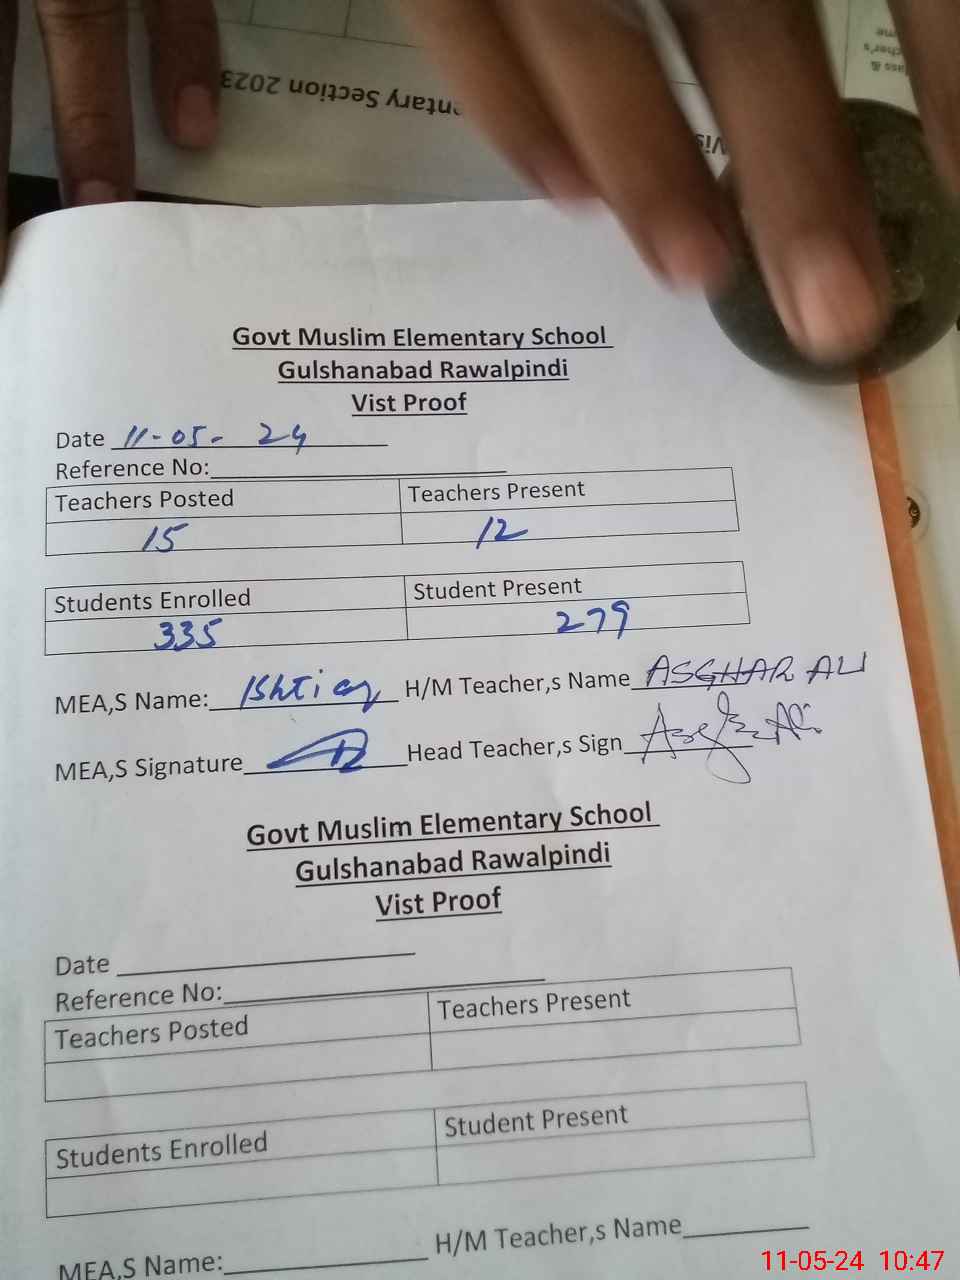 ntary Section 2023
Vis
Govt Muslim Elementary School
Gulshanabad Rawalpindi
Vist Proof
Date 11-05-24
Reference No:
Teachers Posted Teachers Present
15 12
Students Enrolled Student Present
335 279
MEA,S Name: Ishtiaq H/M Teacher,s Name ASGHAR ALI
MEA,S Signature Head Teacher,s Sign
Govt Muslim Elementary School
Gulshanabad Rawalpindi
Vist Proof
Date
Reference No:
Teachers Posted Teachers Present
Students Enrolled Student Present
MEA,S Name: H/M Teacher,s Name
11-05-24 10:47